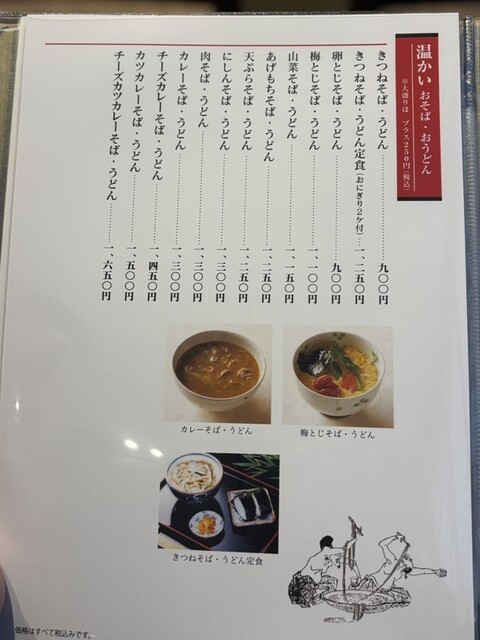 温かい おそば・おうどん
※大盛りは プラス250円(税込)
きつねそば・うどん 九〇〇円
きつねそば・うどん定食(おにぎり2ケ付) 一、二五〇円
卵とじそば・うどん 九〇〇円
梅とじそば・うどん 一、一〇〇円
山菜そば・うどん 一、一五〇円
あげもちそば・うどん 一、二五〇円
天ぷらそば・うどん 一、二五〇円
にしんそば・うどん 一、三〇〇円
肉そば・うどん 一、三〇〇円
カレーそば・うどん 一、三〇〇円
チーズカレーそば・うどん 一、四五〇円
カツカレーそば・うどん 一、五〇〇円
チーズカツカレーそば・うどん 一、六五〇円
カレーそば・うどん
梅とじそば・うどん
きつねそば・うどん定食
価格はすべて税込みです。